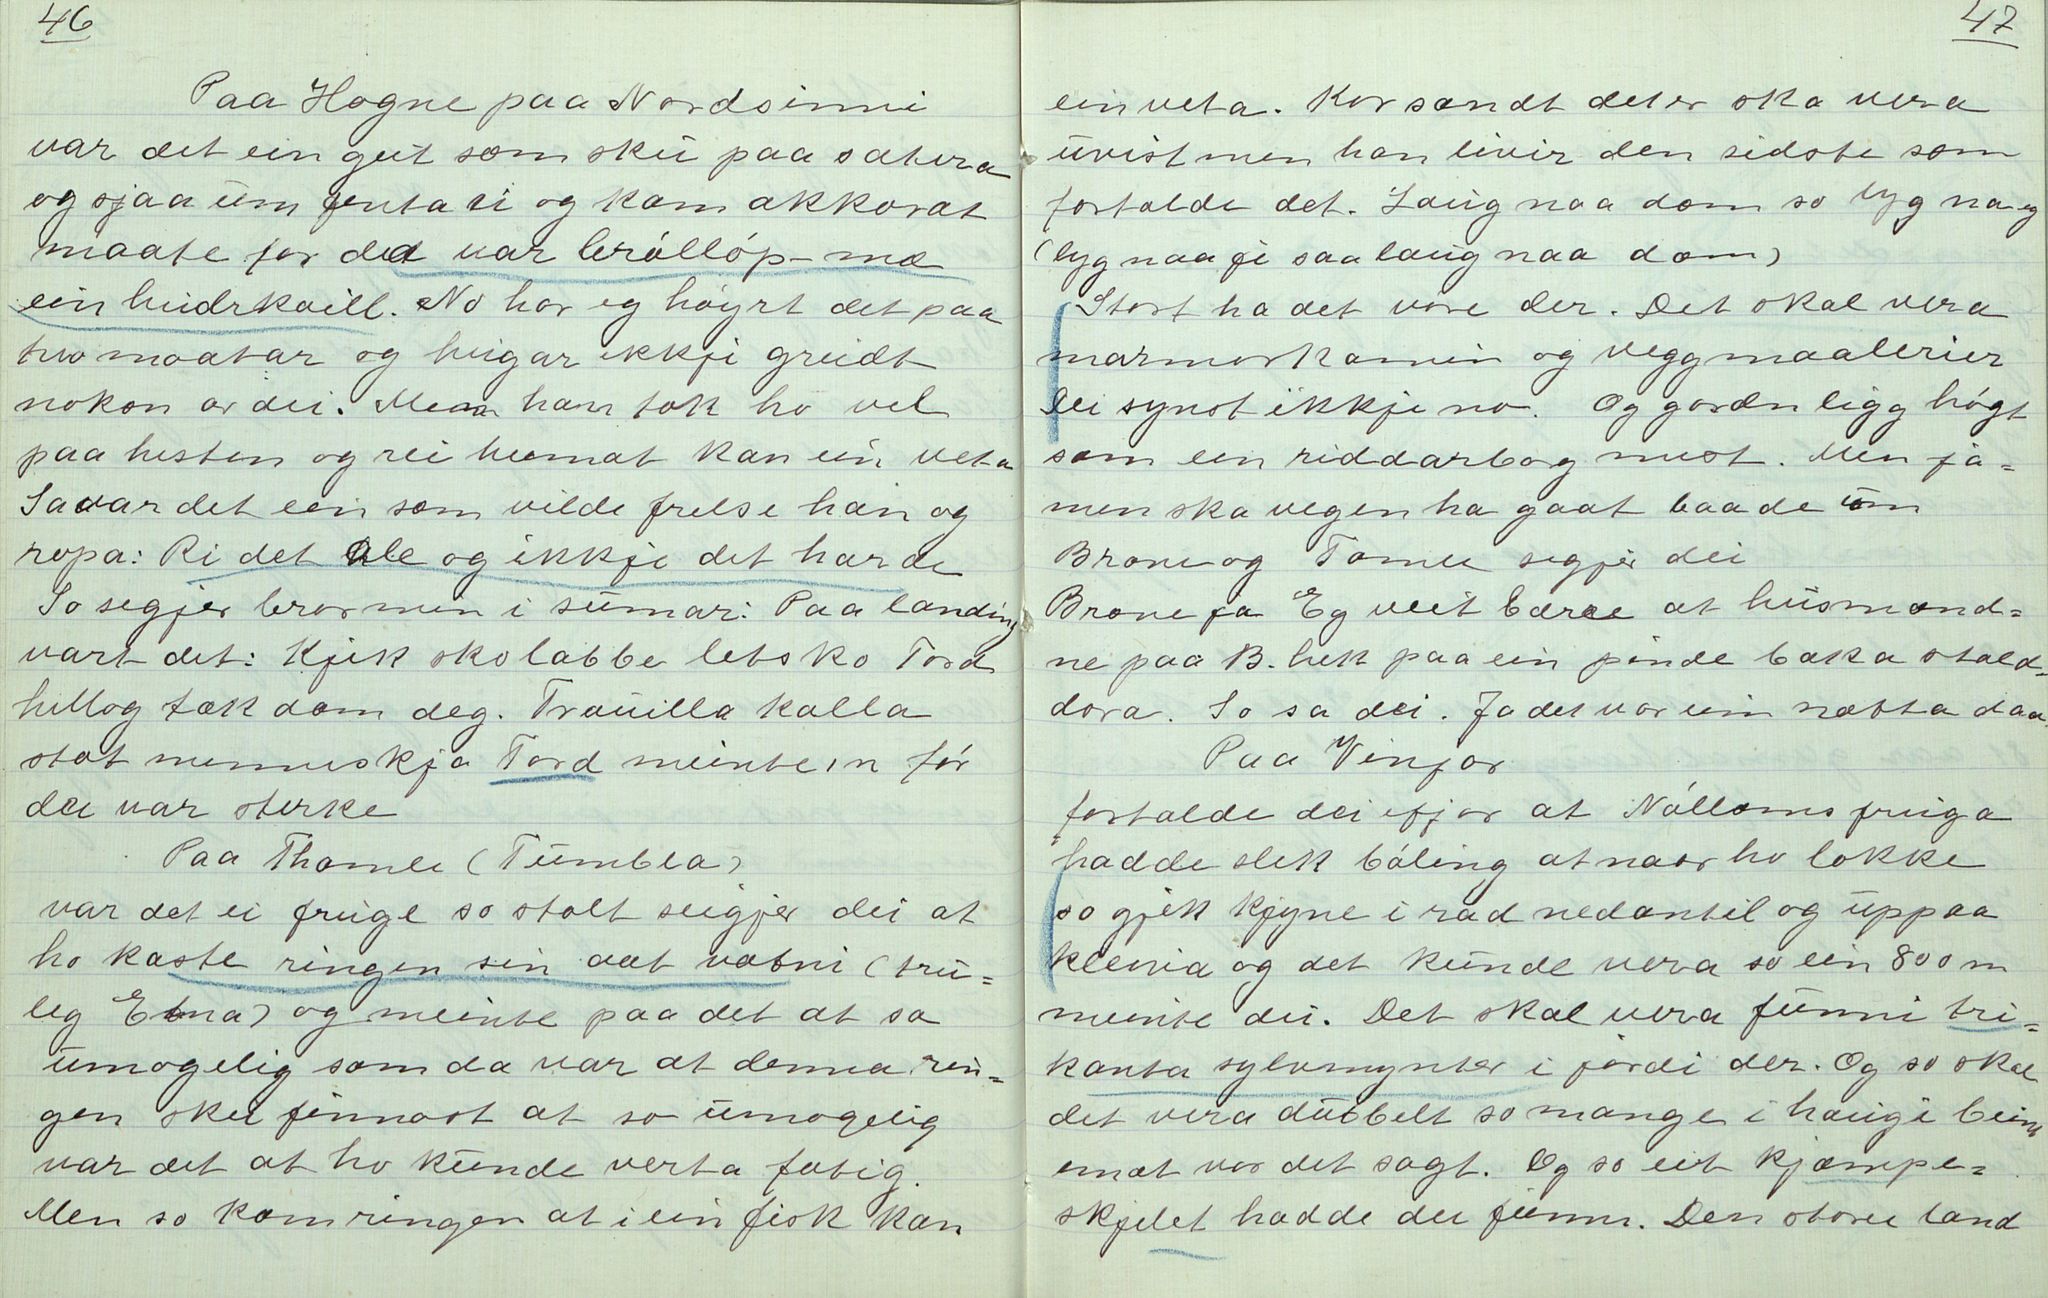 46
Paa Hogne paa Nordsinni
var det ein gut som sku paa sætera
og sjaa um jenta si og kom akkorat
maate for det var bróllóp mæ
ein huldrkaill. No har eg høyrt det paa
two maatar og hugar ikkji greidt
nokon av dei. Men han tok ho vel
paa hesten og rei heimat kan ein veta
Sa var det ein som vilde frelse han og
ropa: Ri det hle og ikkje det harde
So segjer bror min i sumar: Paa landing
vart det: Kjik skolabbe letsko Tord
hellog tæk dom deg. Trauilla kalla
stot menneskja Tord meinte in fór
dei var sterke
Paa Thomle (Tumbla)
var det ei fruge so stolt seigjer dei at
ho kaste ringen sin aat vatni (tru=
leg Etna) og meinte paa det at sa
umogelig som da var at denna rin=
gen sku finnast at so umogelig
var det at ho kunde verta fatig.
Men so kom ringen at i ein fisk kan
47
ein veta. Kor sandt det er ska vera
uvist men han livir den sidste som
fortalde det. Laug naa dom so lyg na eg
(lyg naa ji saa laug naa dom)
Stort ha det vore der. Det skal vera
marmorkamin og veggmaalerier
Dei synst ikkje no. Og gardn ligg høgt
som ein riddarborg mest. Men ja=
men ska vegen ha gaat baade um
Brone og Tomle segjer dei
Brone ja Eg veit bære at husmænd=
ne paa B. hekk paa ein pinde baka stald=
dora. So sa dei. Ja det var ein næbta daa.
Paa Vinjar
fortalde dei ifjor at Nóllomsfruga
hadde slek bóling at naar ho lokke
so gjek kjyne i rad nedantil og uppaa
kleivia og det kunde vera so ein 800 m
meinte dei. Det skal vera funni tri=
kanta sylvmynter i jordi der. Og so skal
det vera dubbelt so mange i haugi beint
imot var det sagt. Og so eit kjæmpe=
skjelet hadde dei funni. Den store land